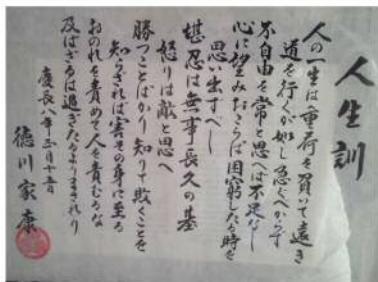 人生訓
人の一生は重荷を負いて遠き
道を行くが如し急ぐべからず
不自由を常と思へば不足なし
心に望みおこらば困窮したる時を
思い出すべし
堪忍は無事長久の基
怒りは敵と思へ
勝つことばかり知りて敗くことを
知らざれば害その身に至る
おのれを責めて人を責むるな
及ばざるは過ぎたるよりまされり
慶長八年正月十五日
徳川家康